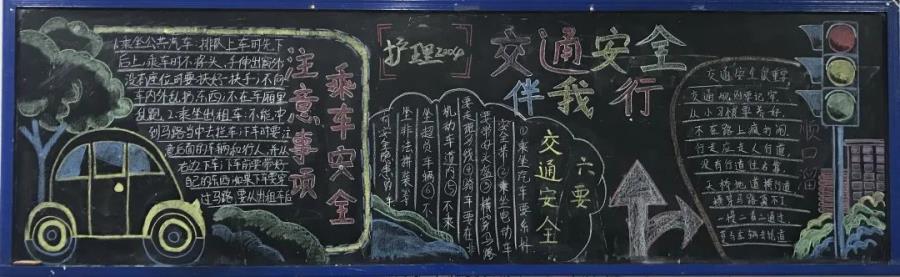 1.乘坐公共汽车:排队上车可先下
后上,乘车时不将头、手伸出窗外
没有座位时要扶好扶手;不向
车内外乱扔东西;不在车厢里
乱跑。2.乘坐出租车:不能冲
到马路当中去拦车;下车时要注
意后面的车辆和行人,并从
右边下车;下车前要带好
自己的东西;如果下车要穿
过马路,要从出租车后
乘车安全
注意事项
护理2004
交通安全
伴我行
六要
交通安全
①乘坐汽车要系好
安全带②乘坐电动车
要带好头盔③横穿马路
要走斑马线④骑车要在非
机动车道内⑤不来
坐超员车辆⑥不
坐非法拼装等
有安全隐患的车
交通安全最重要,
交通规则要记牢,
从小习惯要养好,
不在路上疯打闹。
行走应走人行道,
没有行道往右靠,
天桥地道横行道,
横穿马路离不了。
一慢二看三通过,
莫与车辆去抢道
顺口溜